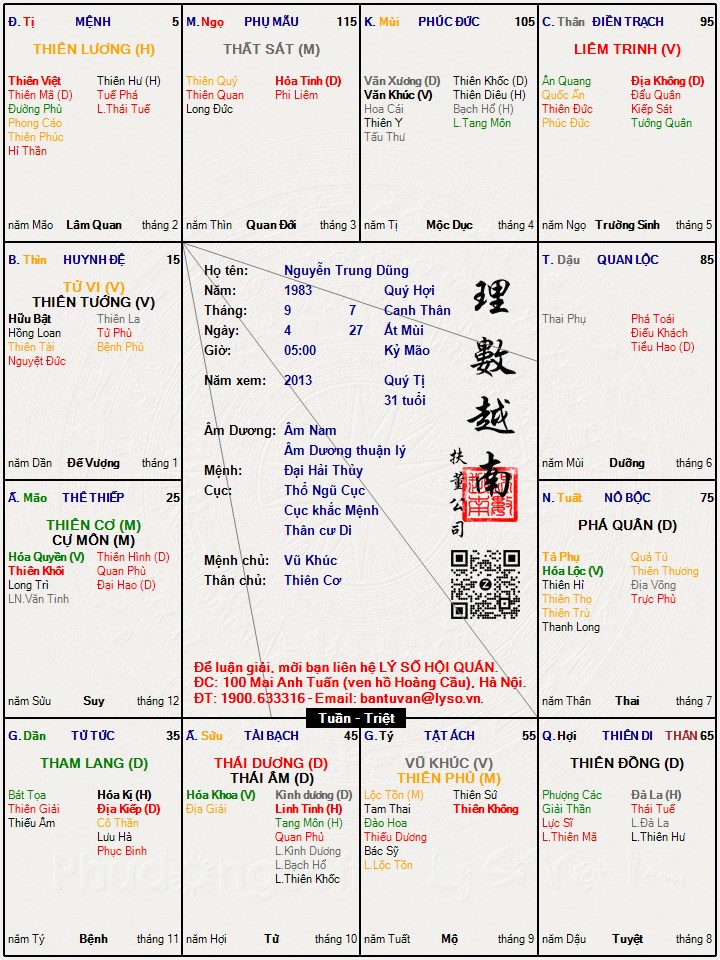 Đ. Tị MỆNH 5
THIÊN LƯƠNG (H)
Thiên Việt Thiên Hư (H)
Thiên Mã (D) Tuế Phá
Đường Phù L.Thái Tuế
Phong Cáo
Thiên Phúc
Hỉ Thần
năm Mão Lâm Quan tháng 2
M. Ngọ PHỤ MẪU 115
THẤT SÁT (M)
Thiên Quý Hỏa Tinh (D)
Thiên Quan Phi Liêm
Long Đức
năm Thìn Quan Đới tháng 3
K. Mùi PHÚC ĐỨC 105
Văn Xương (D) Thiên Khốc (D)
Văn Khúc (V) Thiên Diêu (H)
Hoa Cái Bạch Hổ (H)
Thiên Y L.Tang Môn
Tấu Thư
năm Tị Mộc Dục tháng 4
C. Thân ĐIỀN TRẠCH 95
LIÊM TRINH (V)
Ân Quang Địa Không (D)
Quốc Ấn Đẩu Quân
Thiên Đức Kiếp Sát
Phúc Đức Tướng Quân
năm Ngọ Trường Sinh tháng 5
B. Thìn HUYNH ĐỆ 15
TỬ VI (V)
THIÊN TƯỚNG (V)
Hữu Bật Thiên La
Hồng Loan Tử Phù
Thiên Tài Bệnh Phù
Nguyệt Đức
năm Dần Đế Vượng tháng 1
Họ tên: Nguyễn Trung Dũng
Năm: 1983 Quý Hợi
Tháng: 9 7 Canh Thân
Ngày: 4 27 Ất Mùi
Giờ: 05:00 Kỷ Mão
Năm xem: 2013 Quý Tị
31 tuổi
Âm Dương: Âm Nam
Âm Dương thuận lý
Mệnh: Đại Hải Thủy
Cục: Thổ Ngũ Cục
Cục khắc Mệnh
Thân cư Di
Mệnh chủ: Vũ Khúc
Thân chủ: Thiên Cơ
理數越南
扶董公司
Để luận giải, mời bạn liên hệ LÝ SỐ HỘI QUÁN.
ĐC: 100 Mai Anh Tuấn (ven hồ Hoàng Cầu), Hà Nội.
ĐT: 1900.633316 - Email: bantuvan@lyso.vn.
Tuần - Triệt
T. Dậu QUAN LỘC 85
Thai Phụ Phá Toái
Điếu Khách
Tiểu Hao (D)
năm Mùi Dưỡng tháng 6
Ấ. Mão THÊ THIẾP 25
THIÊN CƠ (M)
CỰ MÔN (M)
Hóa Quyền (V) Thiên Hình (D)
Thiên Khôi Quan Phù
Long Trì Đại Hao (D)
LN.Văn Tinh
năm Sửu Suy tháng 12
N. Tuất NÔ BỘC 75
PHÁ QUÂN (D)
Tả Phụ Quả Tú
Hóa Lộc (V) Thiên Thương
Thiên Hỉ Địa Võng
Thiên Thọ Trực Phù
Thiên Trù
Thanh Long
năm Thân Thai tháng 7
G. Dần TỬ TỨC 35
THAM LANG (D)
Bát Tọa Hóa Kị (H)
Thiên Giải Địa Kiếp (D)
Thiếu Âm Cô Thần
Lưu Hà
Phục Binh
năm Tý Bệnh tháng 11
Ấ. Sửu TÀI BẠCH 45
THÁI DƯƠNG (D)
THÁI ÂM (D)
Hóa Khoa (V) Kình dương (D)
Địa Giải Linh Tinh (H)
Tang Môn (H)
Quan Phủ
L.Kình Dương
L.Bạch Hổ
L.Thiên Khốc
năm Hợi Tử tháng 10
G. Tý TẬT ÁCH 55
VŨ KHÚC (V)
THIÊN PHỦ (M)
Lộc Tồn (M) Thiên Sứ
Tam Thai Thiên Không
Đào Hoa
Thiếu Dương
Bác Sỹ
L.Lộc Tồn
năm Tuất Mộ tháng 9
Q. Hợi THIÊN DI THÂN 65
THIÊN ĐỒNG (D)
Phượng Các Đà La (H)
Giải Thần Thái Tuế
Lực Sĩ L.Đà La
L.Thiên Mã L.Thiên Hư
năm Dậu Tuyệt tháng 8